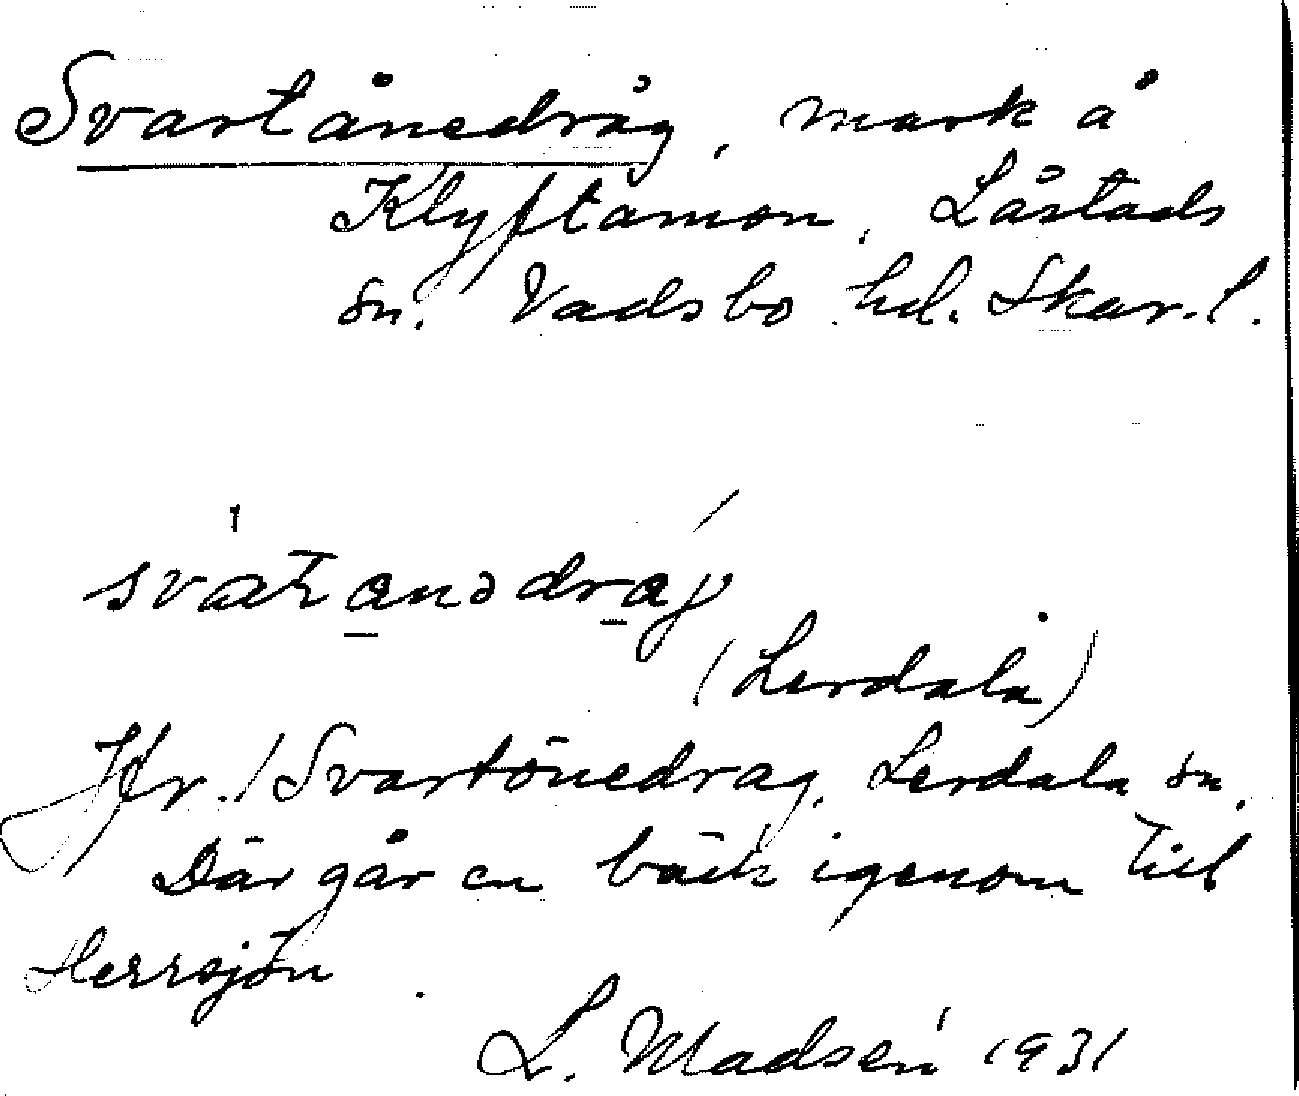 Svartånedråg, mark å
Klyftamon, Låstads
sn. Vadsbo hd. Skar. l.
(Lerdala)
Jfr. / Svartönedrag, Lerdala sn.
Där går en bäck igenom till
Herrsjön.
L. Madsén 1931